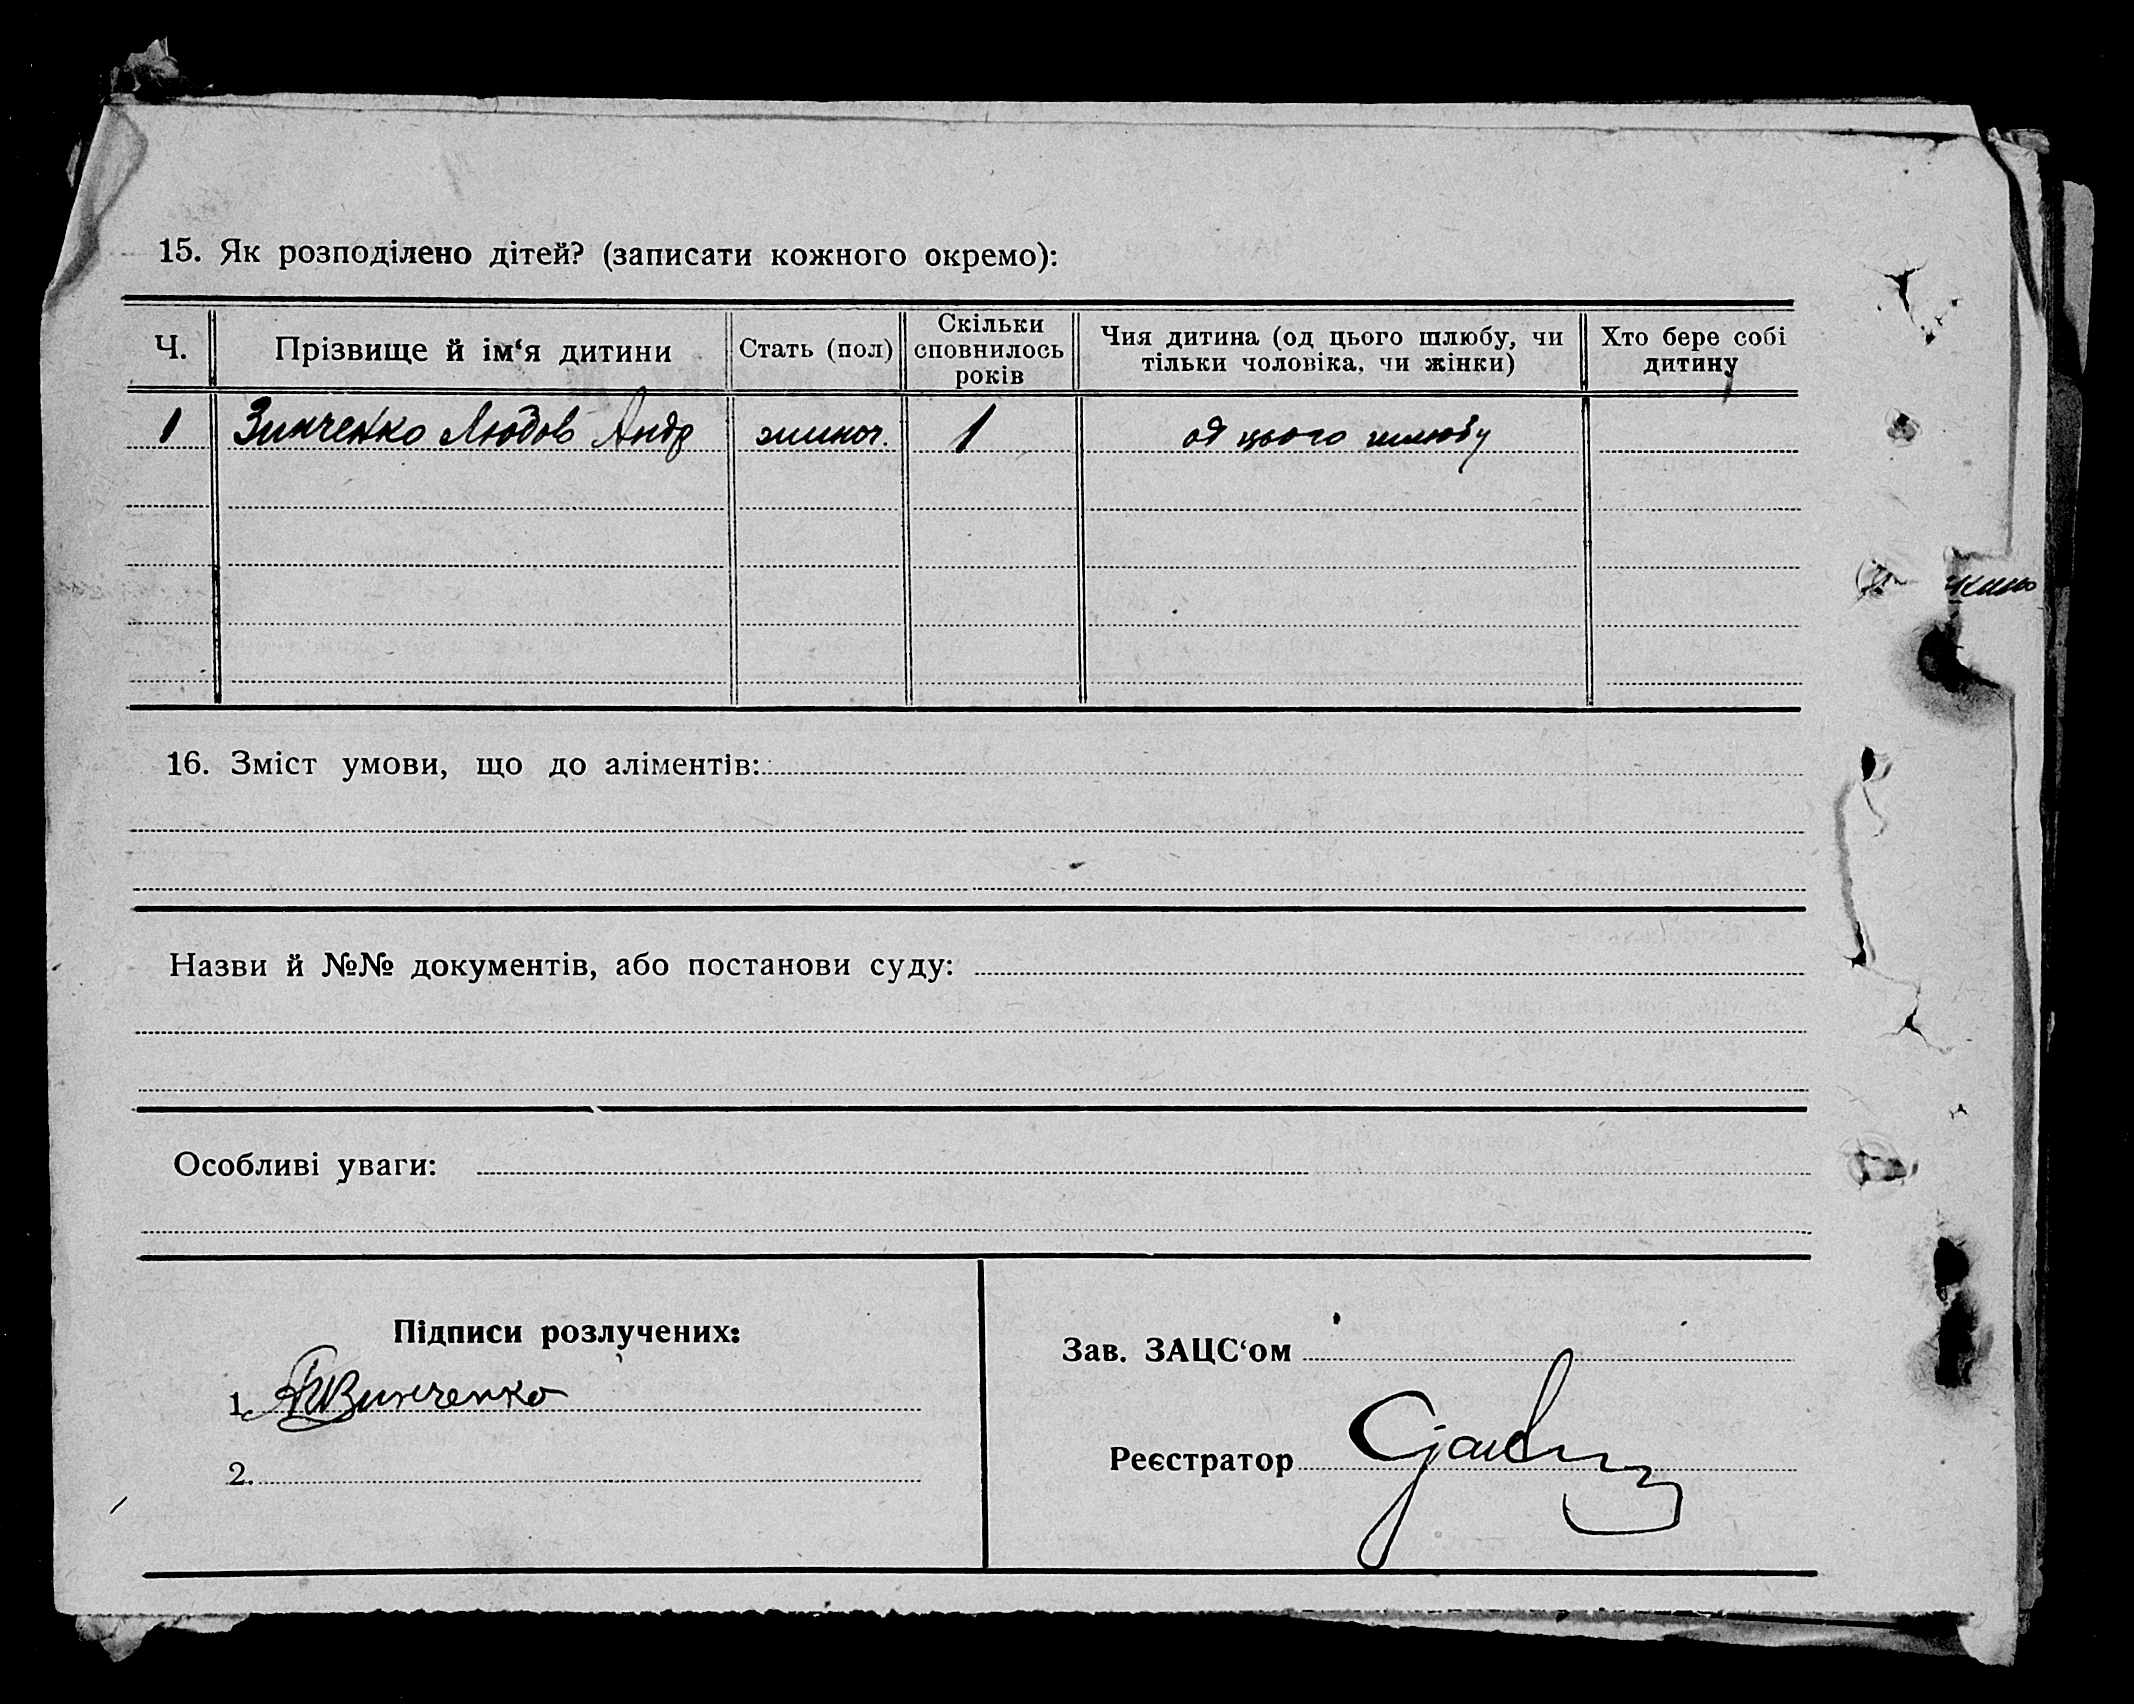 15. Як розподілено дітей? (записати кожного окремо):
Ч. Прізвище й ім‘я дитини Стать (пол) Скільки сповнилось років Чия дитина (од цього шлюбу, чи тільки чоловіка, чи жінки) Хто бере собі дитину
1 Зинченко Любов Андр жиноч. 1 од цього шлюбу
16. Зміст умови, що до аліментів:
Назви й №№ документів, або постанови суду:
Особливі уваги:
Підписи розлучених:
1. Зинченко
2.
Зав. ЗАЦС‘ом
Реєстратор